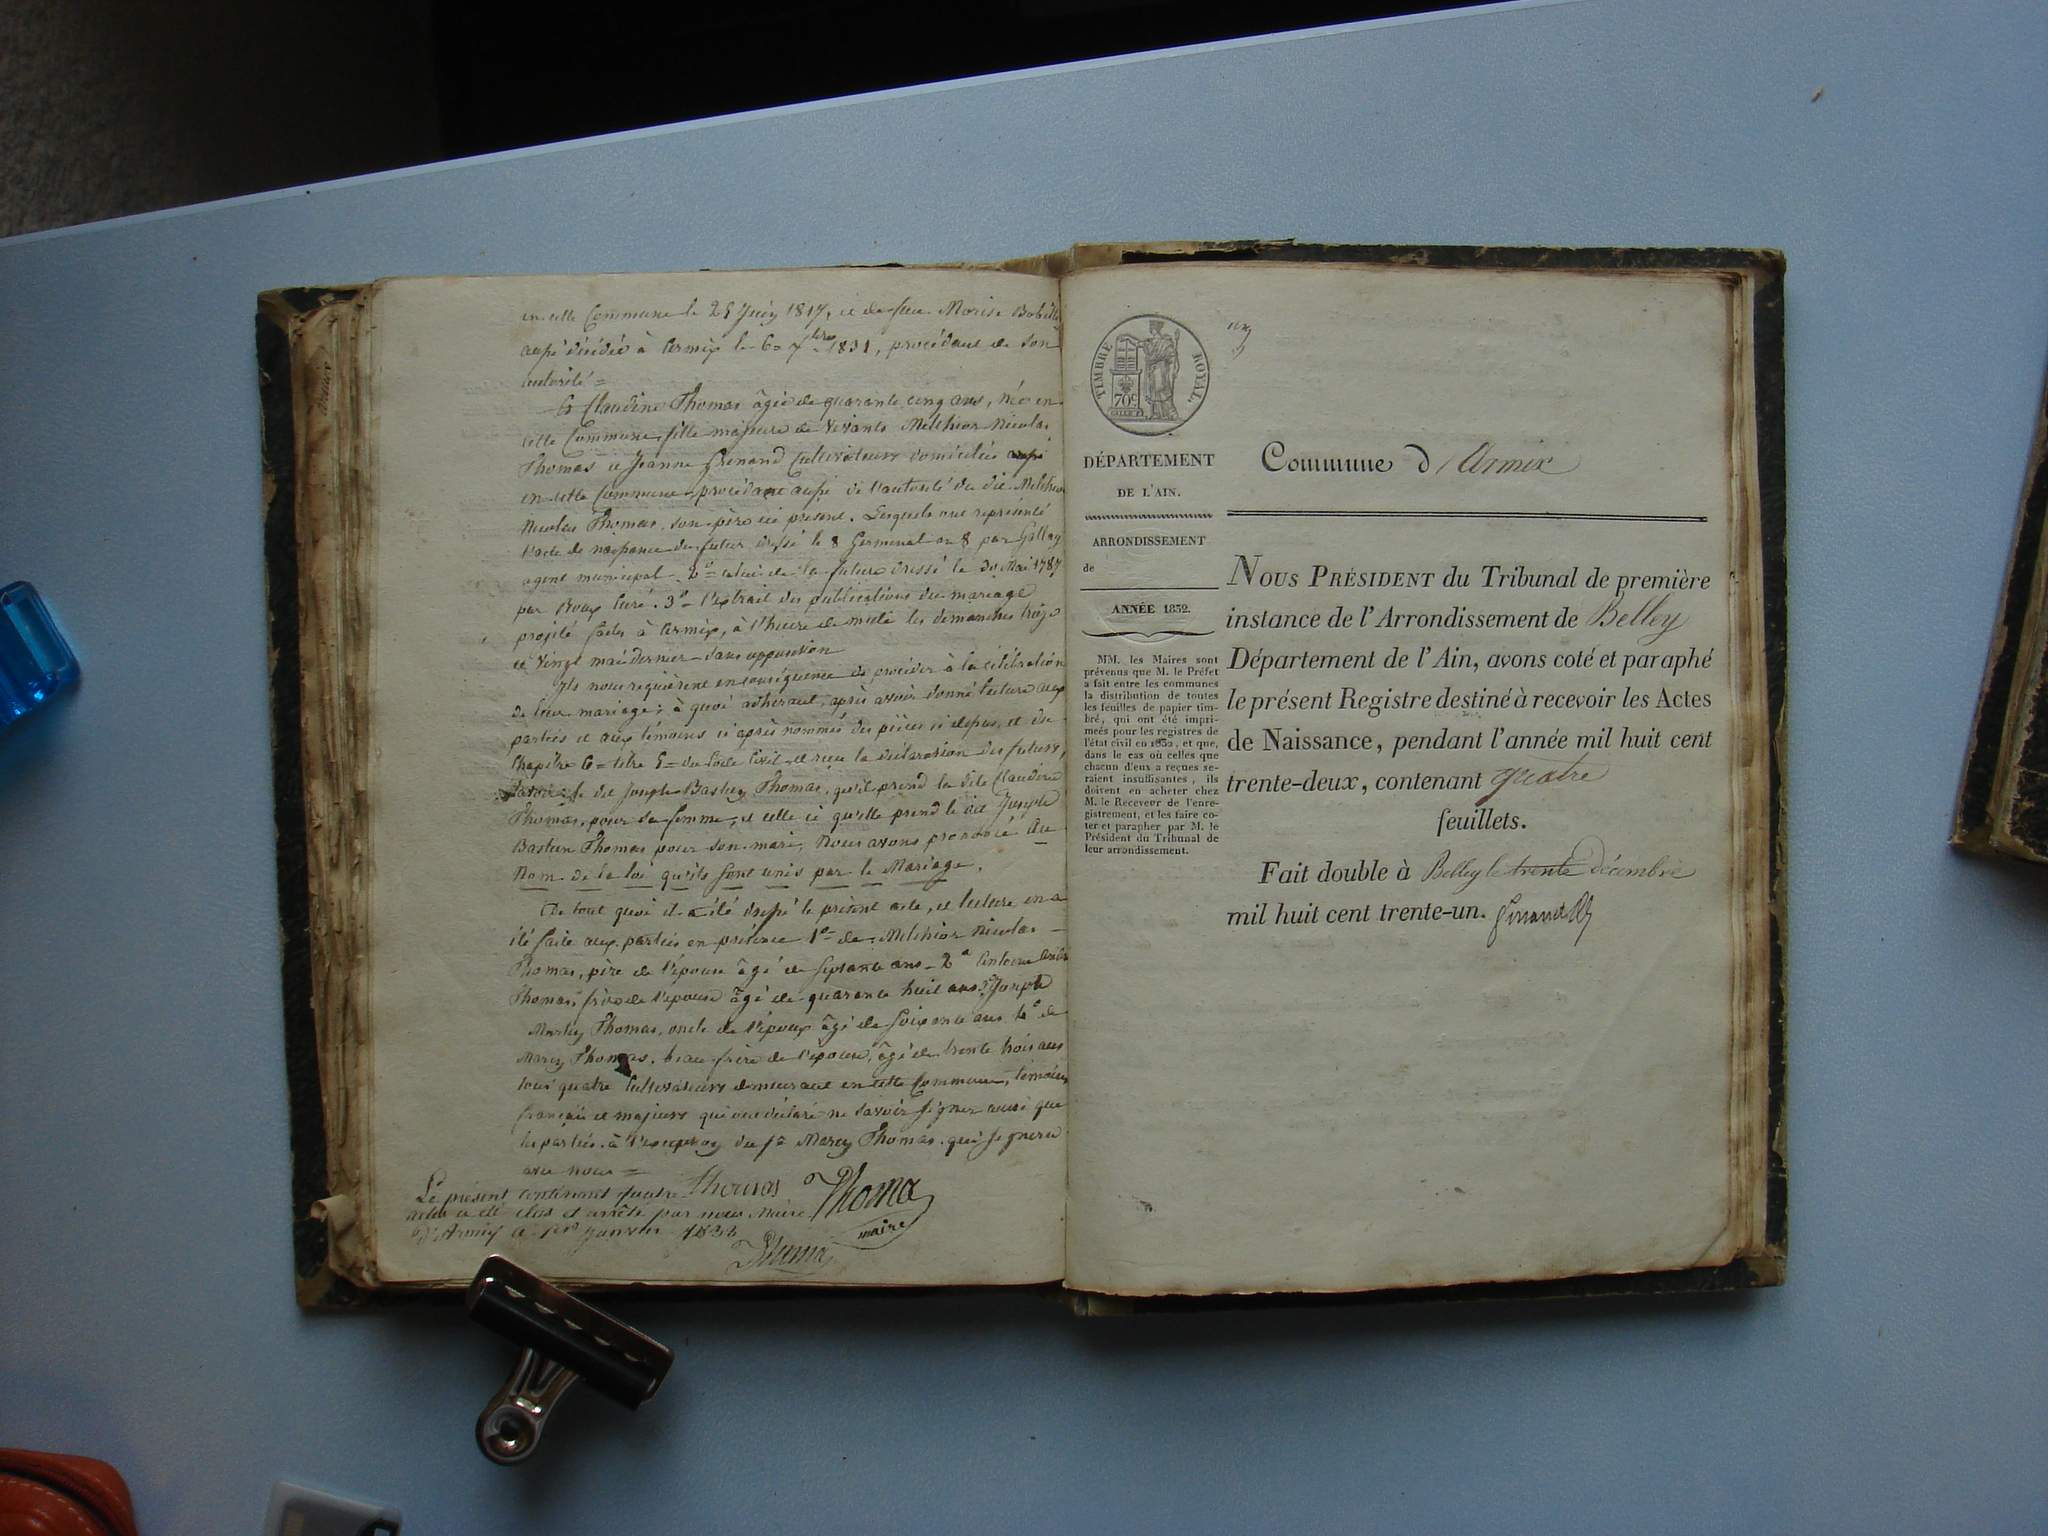 en cette Commune le 25 Juin 1817, et de feue Morise
aussi décédée à Armix le 6 7bre 1831, procédant de son
autorité =
Et Claudine Thomas âgée de quarante cinq ans, née en
cette Commune, fille majeure de vivants Melchior Nicolas
Thomas et Jeanne Grenand Cultivateurs domiciliés aussi
en cette Commune procédant aussi de l'autorité du dit Melchior
Nicolas Thomas son père ici présent. Lesquels ont représenté
l'acte de naissance du futur dressé le 8 Germinal an 8 par
agent municipal. 2º celui de la future dressé le Mai 1787
par Roux Curé. 3º l'extrait des publications du mariage
projeté faites à Armix, à l'heure de midi les dimanches treize
et vingt mai dernier sans opposition
Ils nous requièrent en conséquence de procéder à la célébration
de leur mariage; à quoi adhérant, après avoir donné lecture aux
parties et aux témoins ci après nommés des pièces ci dessus, et du
Chapitre 6 = titre 5 = du Code Civil et reçu la déclaration des futurs,
Savoir: le dit Joseph Bastien Thomas, qu'il prend la dite Claudine
Thomas, pour sa femme, et celle ci qu'elle prend le dit Joseph
Bastien Thomas pour son mari, Nous avons prononcé Au
Nom de la loi qu'ils sont unis par le Mariage.
De tout quoi il a été dressé le présent acte, et lecture en a
été faite aux parties en présence 1º de Melchior Nicolas
Thomas, père de l'épouse âgé de septante ans 2º Antoine
Thomas, frère de l'épouse âgé de quarante huit ans 3º Joseph
Thomas, oncle de l'époux âgé de soixante ans 4º de
Marcy Thomas, beau frère de l'épouse, âgé de trente trois ans
tous quatre Cultivateurs demeurant en cette Commune, témoins
français et majeurs qui ont déclaré ne savoir signer ainsi que
les parties à l'exception du sr Marcy Thomas qui signera
avec nous =
Thomas Thoma
maire
Le présent contenant quatre
actes a été clos et arrêté par nous Maire
d'Armix le 1er janvier
Thoma
TIMBRE ROYAL.
70c
DÉPARTEMENT
DE L'AIN.
ARRONDISSEMENT
de
ANNÉE 1832.
MM. les Maires sont
prévenus que M. le Préfet
a fait entre les communes
la distribution de toutes
les feuilles de papier tim-
bré, qui ont été impri-
meés pour les registres de
l'état civil en 1832, et que,
dans le cas où celles que
chacun d'eux a reçues se-
raient insuffisantes, ils
doivent en acheter chez
M. le Receveur de l'enre-
gistrement, et les faire co-
ter et parapher par M. le
Président du Tribunal de
leur arrondissement.
Commune d'Armix
NOUS PRÉSIDENT du Tribunal de première
instance de l'Arrondissement de Belley
Département de l'Ain, avons coté et paraphé
le présent Registre destiné à recevoir les Actes
de Naissance, pendant l'année mil huit cent
trente-deux, contenant quatre
feuillets.
Fait double à Belley le trente décembre
mil huit cent trente-un.